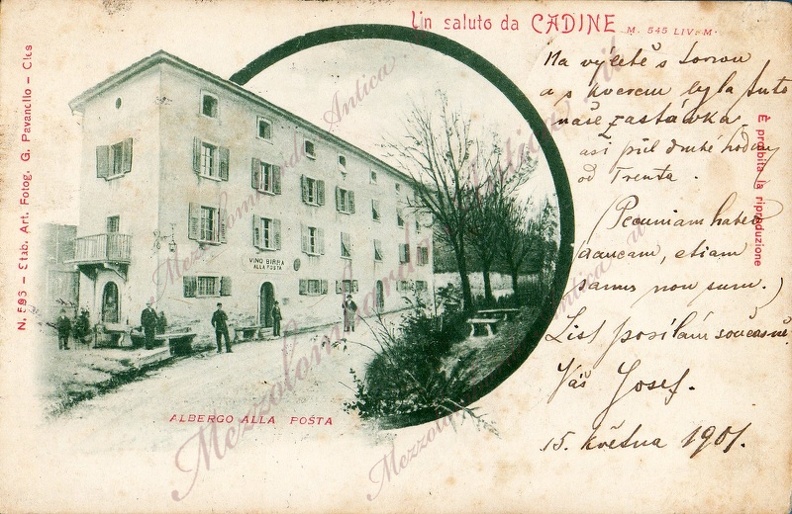 Un saluto da CADINE M. 545 LIV. M.
Na výletě s Lorou
a s Kverem byla tuto
naše zastávka
asi půl druhé hodiny
od Trenta.
(Pecuniam habeo
etiam
sanus non sum.)
List posílám současně.
Váš Josef.
15. května 1901.
VINO BIRRA
ALLA POSTA
ALBERGO ALLA POSTA
N. 593 - Stab. Art. Fotog. G. Pavanello - Cles
È proibita la riproduzione
Mezzolombardo Antica
Mezzolombardo Antica
Mezzolombardo Antica